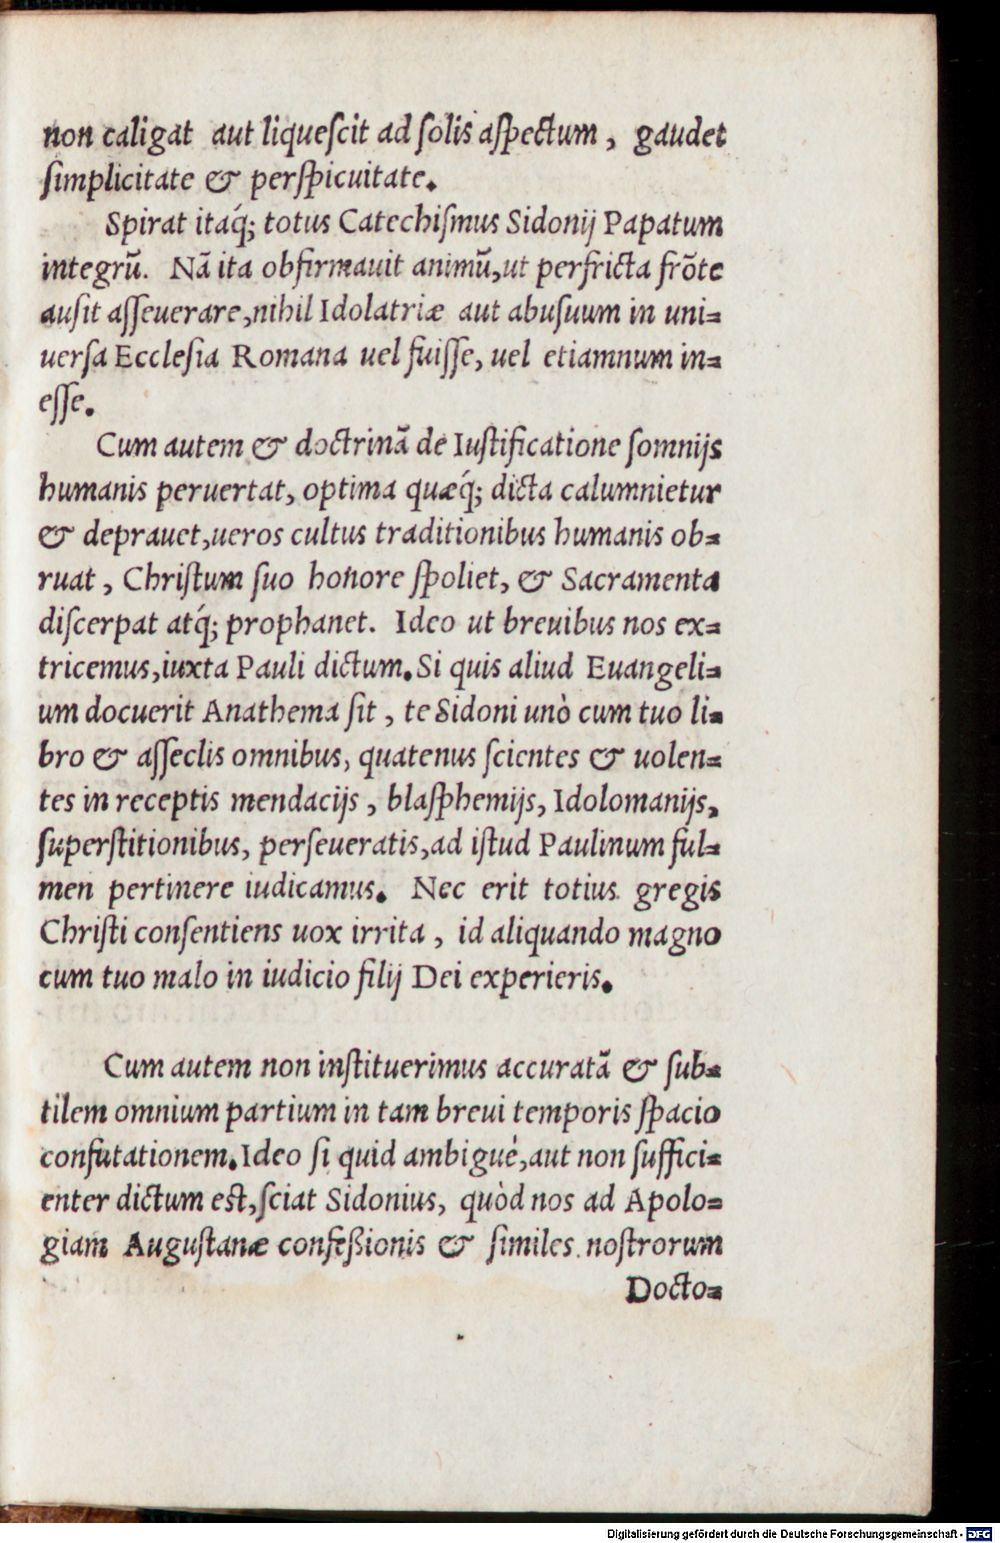 non caligat aut liqueſcit ad ſolis aſpectum, gaudet
ſimplicitate & perſpicuitate.
Spirat itaq́; totus Catechiſmus Sidonij Papatum
integrũ. Nã ita obfirmauit animũ,ut perfricta frõte
auſit aſſeuerare,nihil Idolatriæ aut abuſuum in uni=
uerſa Eccleſia Romana uel fuiſſe, uel etiamnum in=
eſſe.
Cum autem & doctrinã de Iuſtificatione ſomnijs
humanis peruertat, optima quæq́; dicta calumnietur
& deprauet,ueros cultus traditionibus humanis ob=
ruat, Chriſtum ſuo honore ſpoliet, & Sacramenta
diſcerpat atq́; prophanet. Ideo ut breuibus nos ex=
tricemus,iuxta Pauli dictum.Si quis aliud Euangeli=
um docuerit Anathema ſit, te Sidoni unò cum tuo li=
bro & aſſeclis omnibus, quatenus ſcientes & uolen=
tes in receptis mendacijs, blaſphemijs, Idolomanijs,
ſuperſtitionibus, perſeueratis,ad iſtud Paulinum ful=
men pertinere iudicamus. Nec erit totius gregis
Chriſti conſentiens uox irrita, id aliquando magno
cum tuo malo in iudicio filij Dei experieris.
Cum autem non inſtituerimus accuratã & ſub=
tilem omnium partium in tam breui temporis ſpacio
confutationem.Ideo ſi quid ambiguè,aut non ſuffici=
enter dictum eſt,ſciat Sidonius, quòd nos ad Apolo=
giam Auguſtanæ confeßionis & ſimiles noſtrorum
Docto=
Digitalisierung gefördert durch die Deutsche Forschungsgemeinschaft - DFG